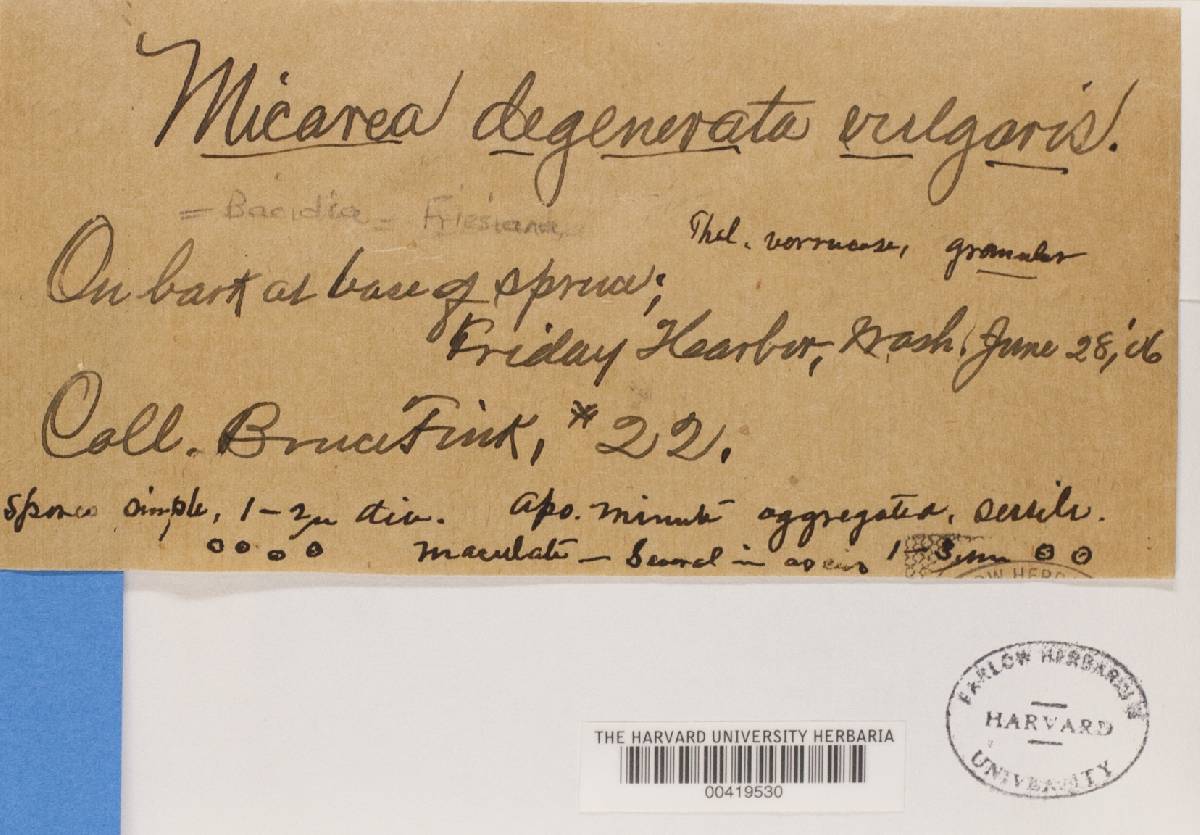 Micarea degenerata vulgaris.
= Bacidia = Friesiana
Thel. verrucose, granular
On bark at base of spruce;
Friday Harbor, Wash. June 28, '06
Coll. Bruce Fink, #22.
Spores simple, 1-2µ dia. Apo. minute aggregated, sessile.
maculate - Several in ascus 1-3µm
FARLOW HERBARIUM
HARVARD
UNIVERSITY
THE HARVARD UNIVERSITY HERBARIA
00419530